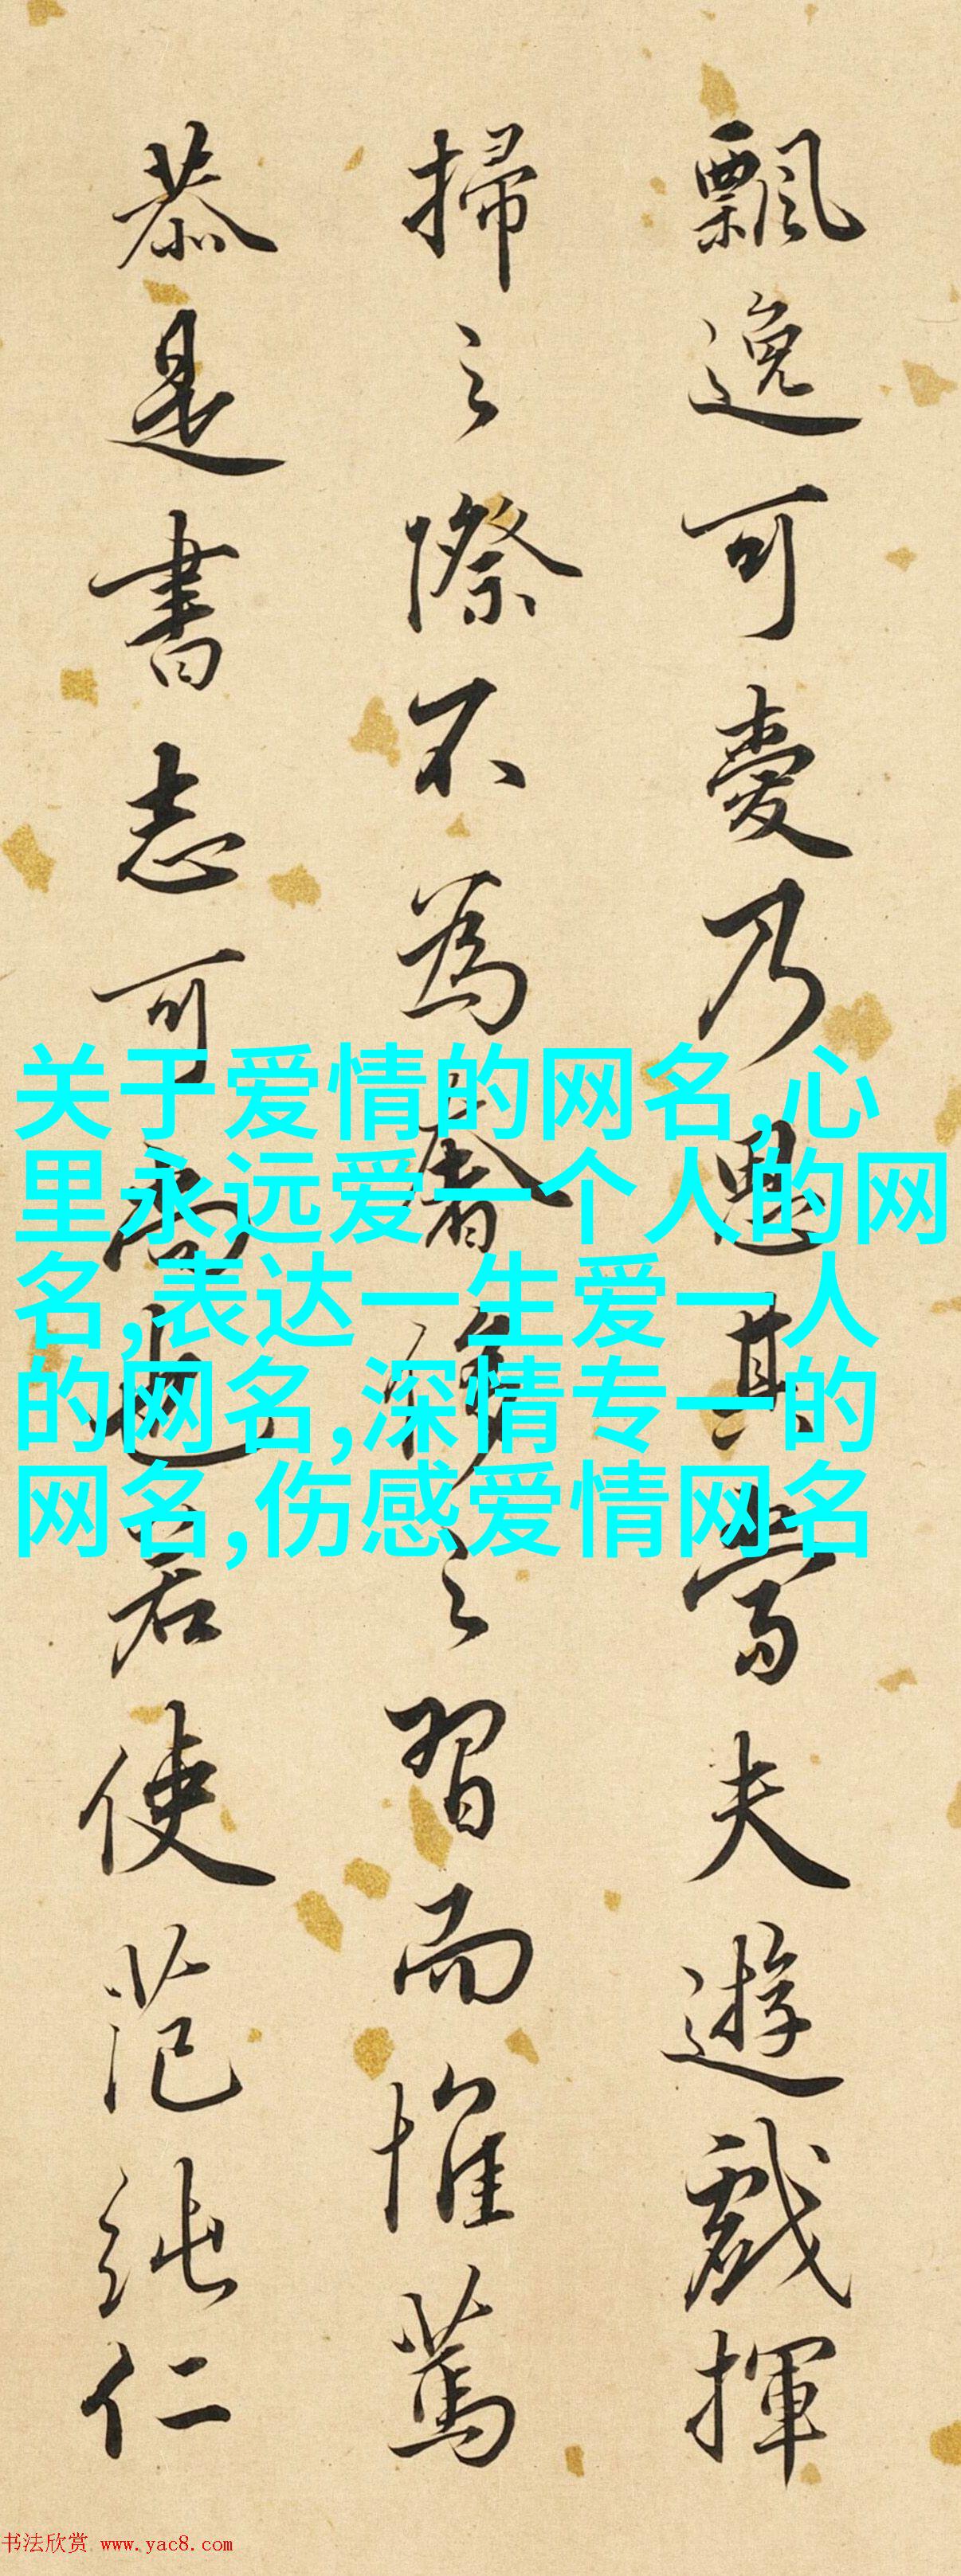 飄逸可愛乃愚其嘗夫遊戲揮
掃之際不為奢移之習而惟篤
恭是書志可尚也若使范純仁
关于爱情的网名,心
里永远爱一个人的网
名,表达一生爱一人
的网名,深情专一的
网名,伤感爱情网名
书法欣赏 www.yac8.com